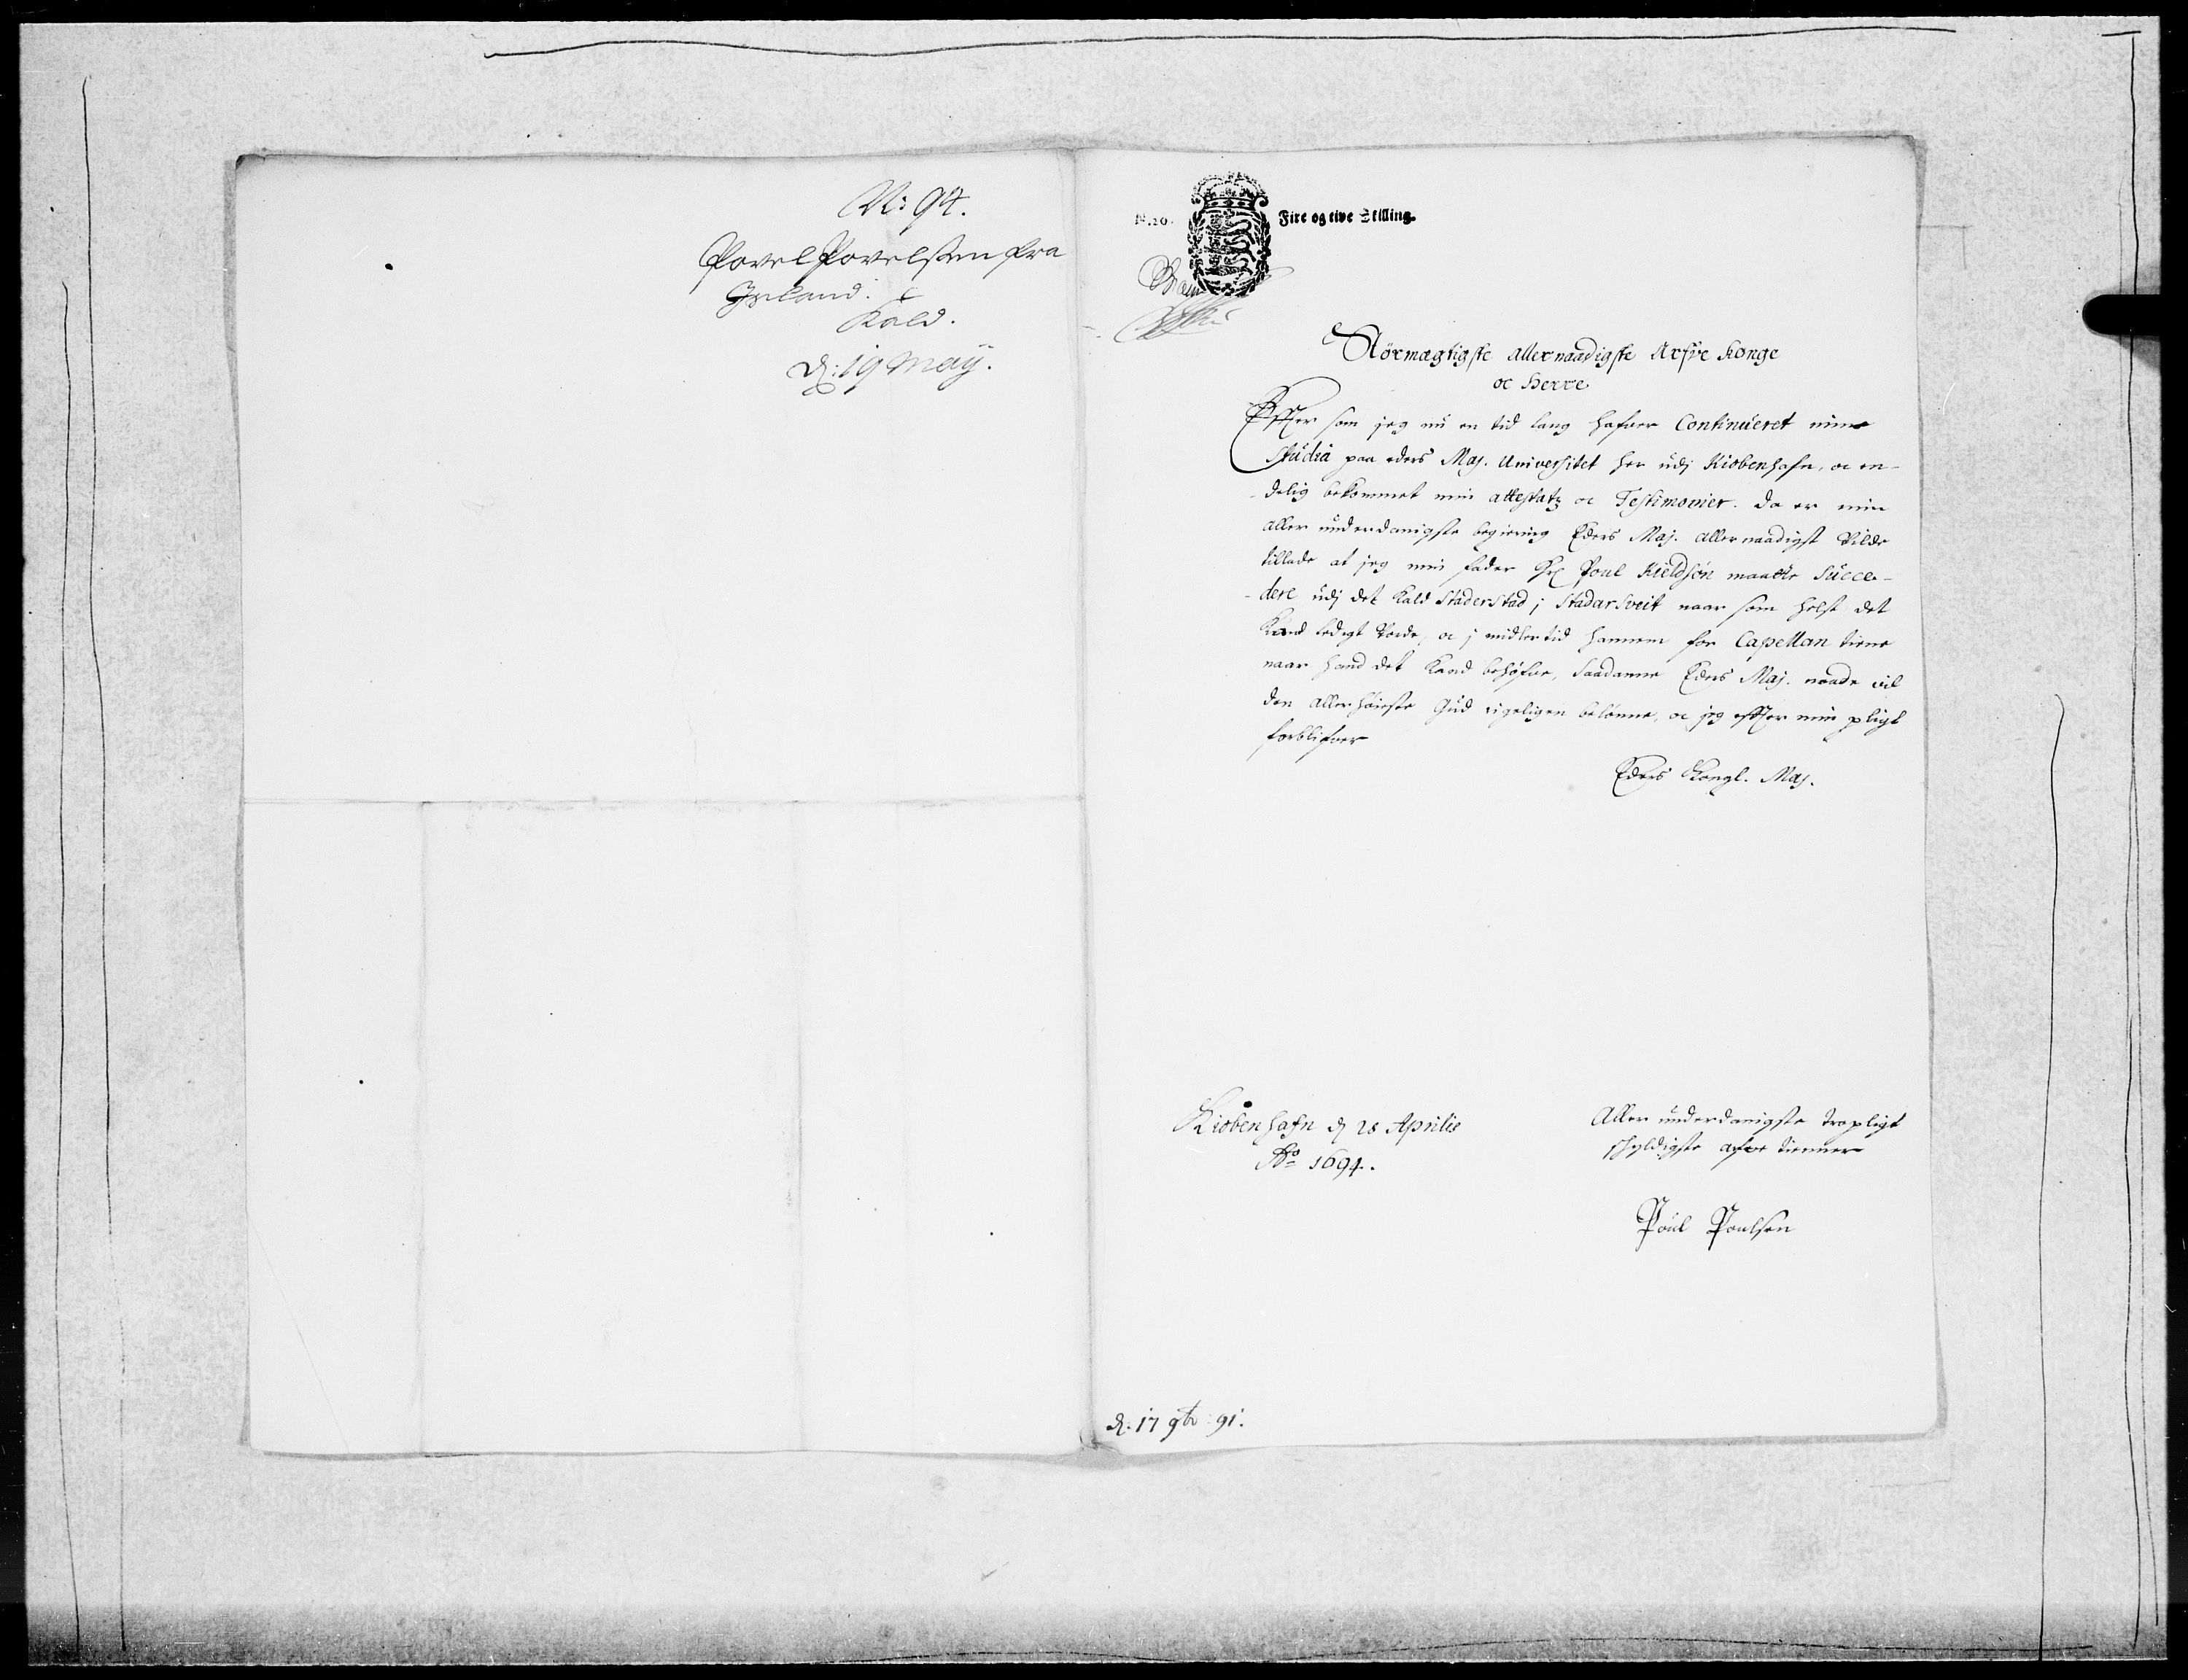 N: 94.
Povel Povelssen fra
Island.
Kald.
d: 19 May.
N.20. Fire og tive Skilling.
Störmægtigste Allernaadigste Arfve Konge
oc Herre
Effter som jeg nu en tid lang hafver Continueret mine
Studia paa eders Maj. Universitet her udj Kiobenhafn, oc en-
delig bekommet min attestatz oc Testimonier. da er min
aller underdanigste begiering Eders Maj. allernaadigst Vilde
tillade at jeg min fader Hr Poul Kieldsön maatte Succe-
-dere udj det Kald Staderstad j Stadarsveit naar som helst det
Kand ledigt Vorde, oc j midlertid hannem for Capellan tiene
naar hand det Kand behøfve, Saadanne Eders Maj. naade vil
den allerhöieste Gud rigeligen belönne, oc jeg effter min pligt
forblifver
Eders Kongl. Maj.
Kiobenhafn d 28 Aprilis
Ao 1694.
Aller underdanigste tropligt
skyldigste arfve tienner
Poul Poulsen
d. 17 9br: 91.